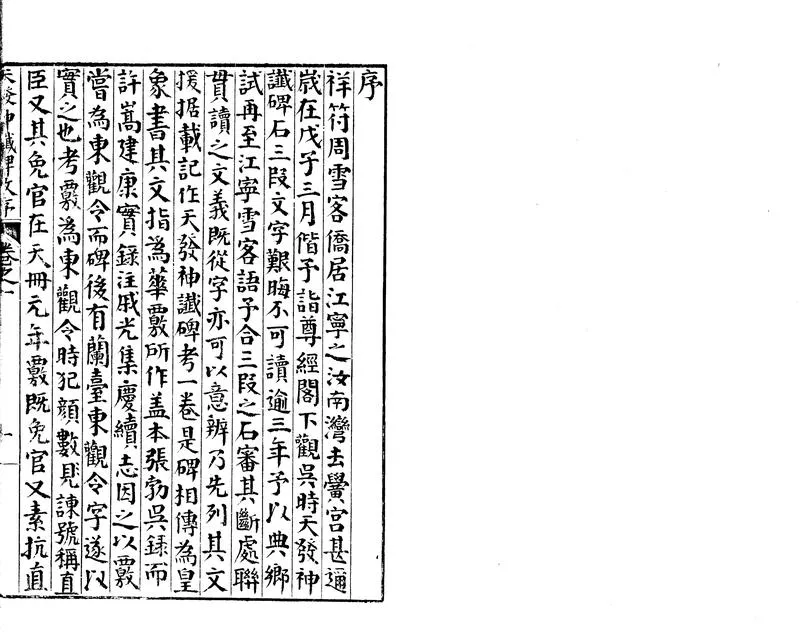 序
祥符周雪客僑居江寧之汝南灣去黌宮甚邇
歲在戊子三月偕予詣尊經閣下觀吳時天發神
讖碑石三段文字艱晦不可讀逾三年予以典鄉
試再至江寧雪客語予合三段之石審其斷處聯
貫讀之文義既從字亦可以意辨乃先列其文
援据載記作天發神讖碑考一卷是碑相傳為皇
象書其文指為華覈所作盖本張勃吳錄而
許嵩建康實錄注戚光集慶續志因之以覈
嘗為東觀令而碑後有蘭臺東觀令字遂以
實之也考覈為東觀令時犯顏數見諫號稱直
臣又其免官在天冊元年覈既免官又素抗直
天發神讖碑考序 卷之一 一